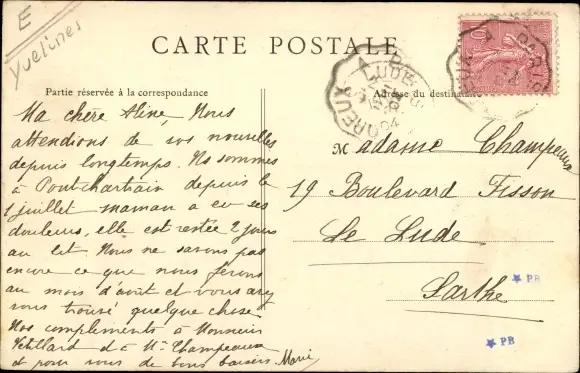 E
Yvelines
CARTE POSTALE
Partie réservée à la correspondance
Adresse du destinataire
Ma chère Aline, Nous
attendions de vos nouvelles
depuis longtemps. Ns sommes
à Pontchartrain depuis le
1 juillet maman a eu ses
douleurs, elle est restée 2 jours
au lit Nous ne savons pas
encore ce que nous ferons
au mois d'août et vous avez
vous trouvé quelque chose
Nos compléments à Monsieur
et à Me Champeaux
et pour vous de bons baisers Marie
Madame Champeaux
19 Boulevard Fisson
Le Lude
Sarthe
PB
PB
10
PARIS
LUDE
04